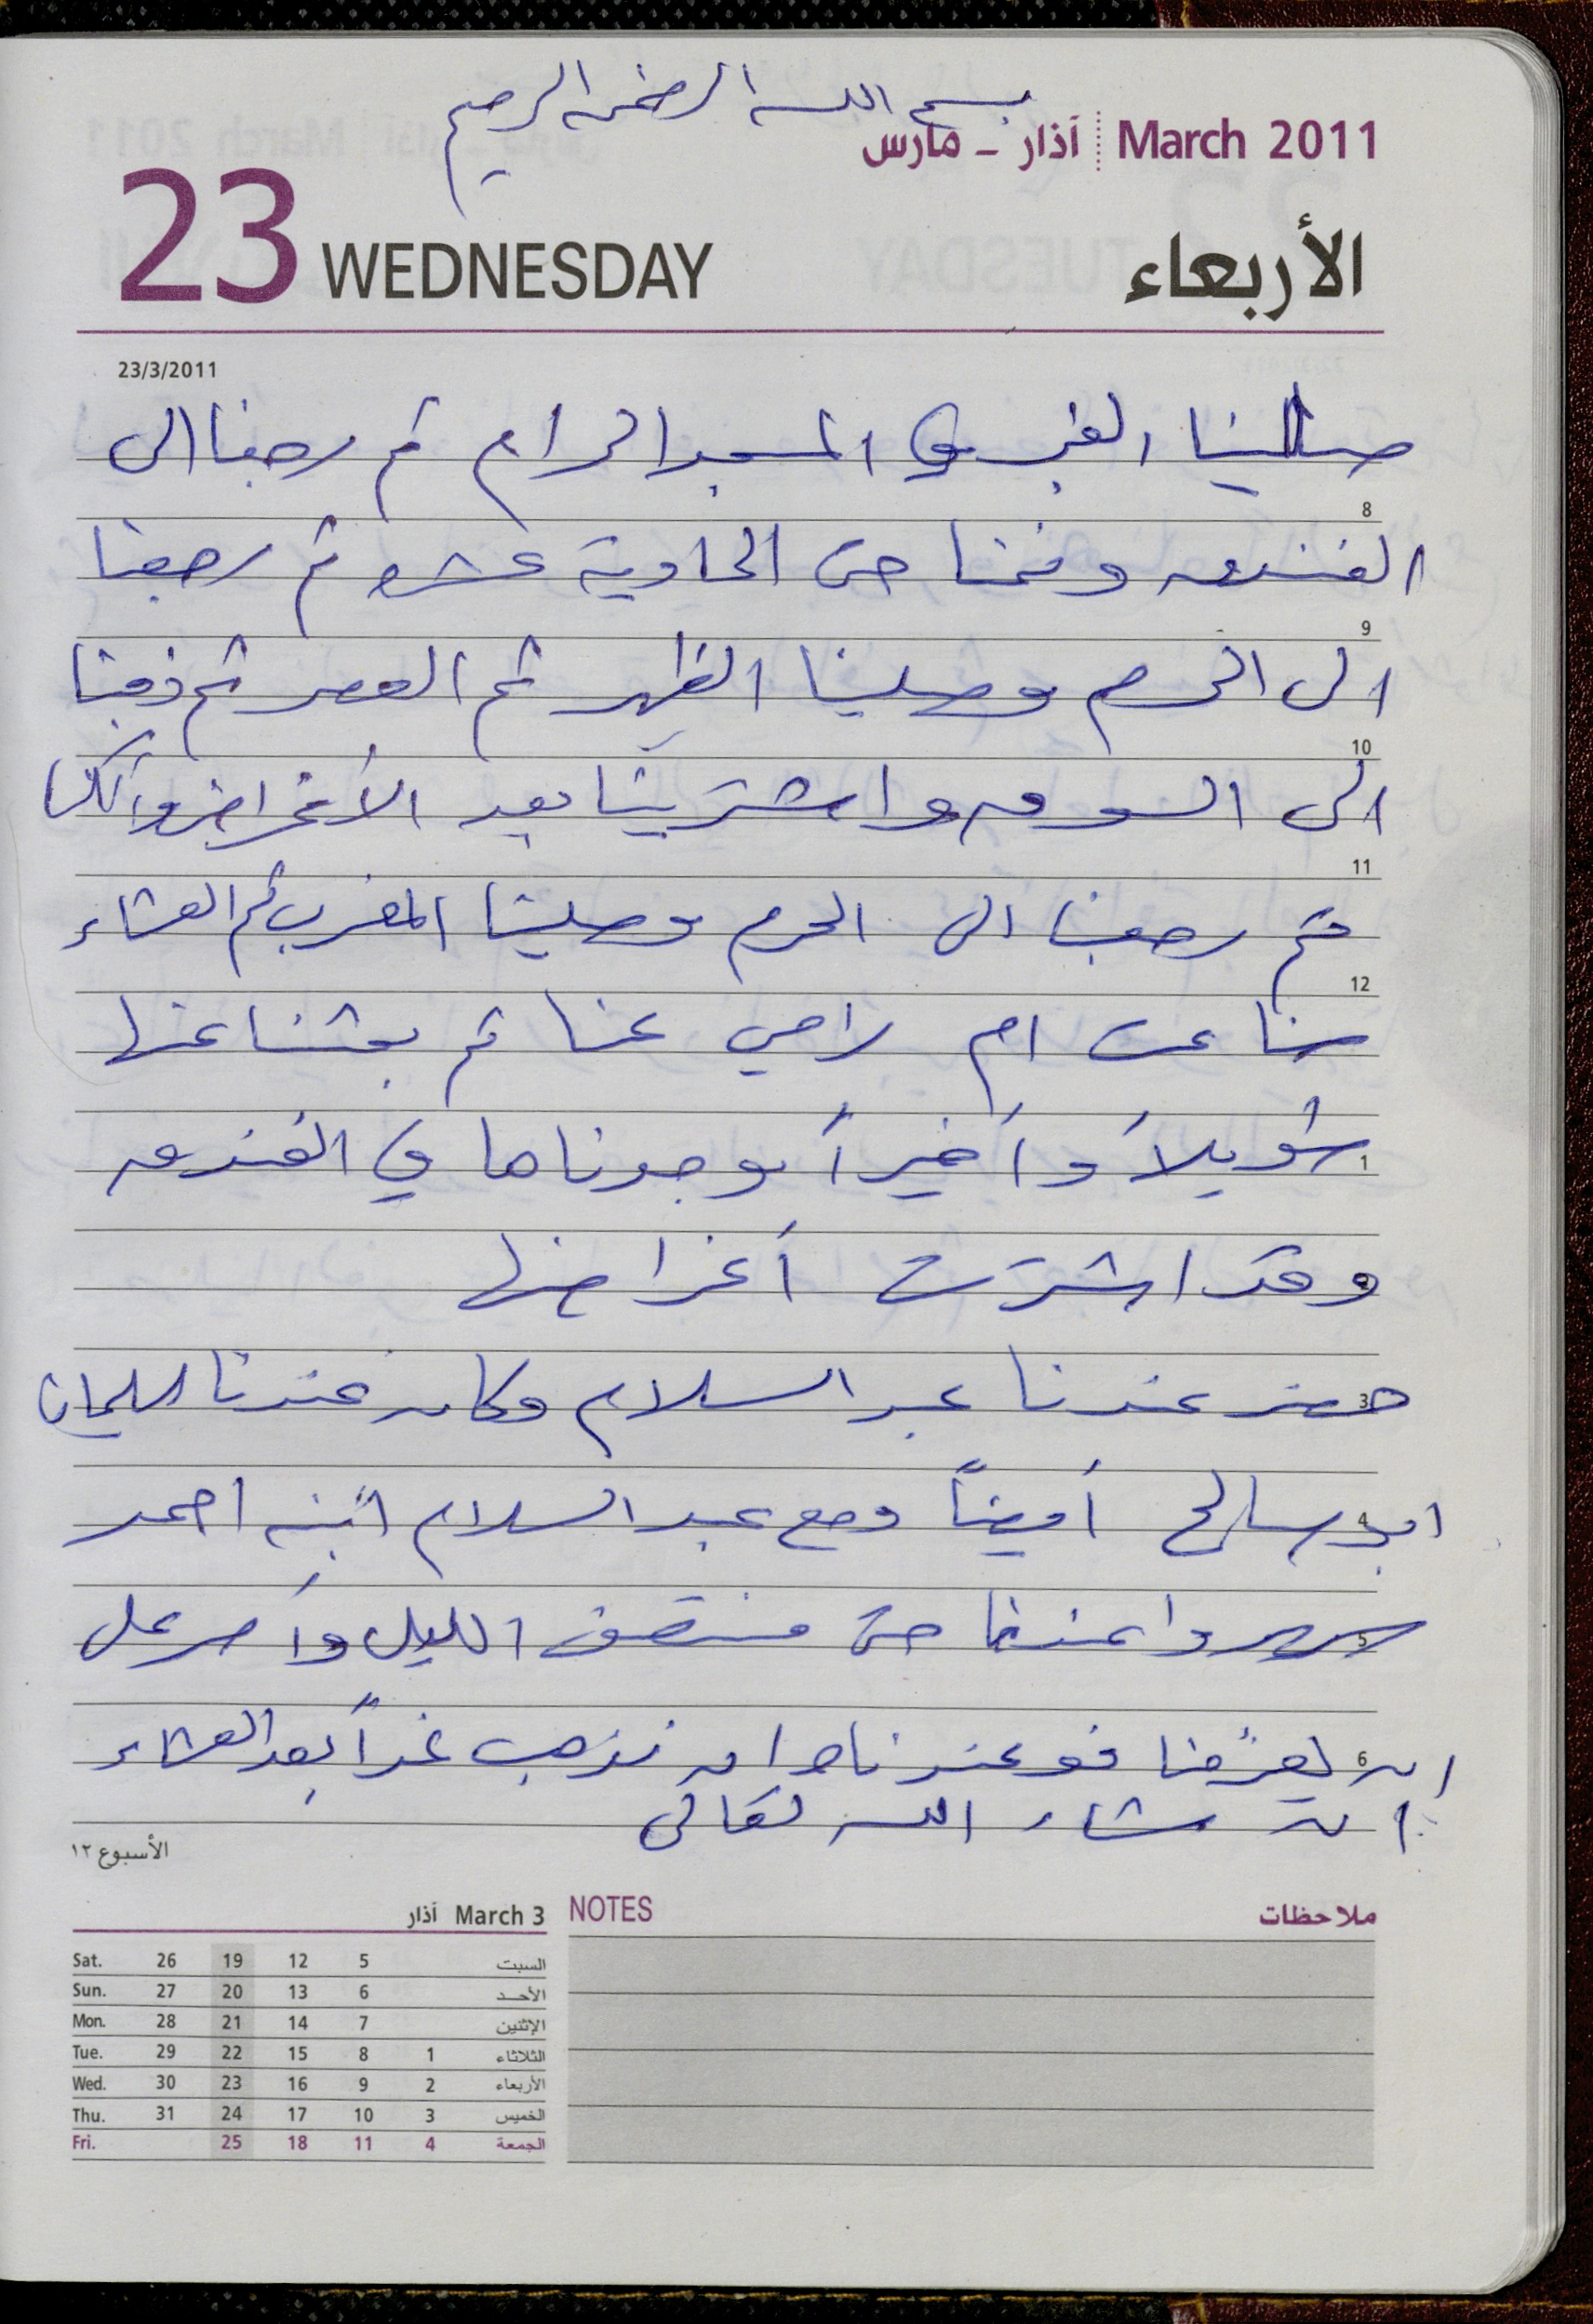 بسم الله الرحمن الرحيم
March 2011 آذار - مارس
23 WEDNESDAY الأربعاء
23/3/2011
صلينا الفجر في المسجد الحرام ثم رجعنا الى
8
الفندق ونمنا حتى الحادية عشر ثم رجعنا
9
الى الحرم وصلينا الظهر ثم العصر ثم ذهبنا
10
الى السوق واشترينا بعد الأغراض وأكلنا
11
ثم رجعنا الى الحرم وصلينا المغرب ثم العشاء
12
ضاعت ام رامي عنا ثم بحثنا عنها
طويلاً وأخيراً وجدناها في الفندق
1
وقد اشترت أغراضها
2
حضر عندنا عبد السلام وكان عندنا سليمان
3
ابو صالح أيضاً ومع عبد السلام ابنه احمد
4
سهروا عندنا حتى منتصف الليل وأصر على
5
ان يعزمنا فوعدناه ان نذهب غداً بعد العشاء
6
ان شاء الله تعالى
الأسبوع ١٢
March 3 آذار
NOTES ملاحظات
Sat. 26 19 12 5 السبت
Sun. 27 20 13 6 الأحد
Mon. 28 21 14 7 الإثنين
Tue. 29 22 15 8 1 الثلاثاء
Wed. 30 23 16 9 2 الأربعاء
Thu. 31 24 17 10 3 الخميس
Fri. 25 18 11 4 الجمعة